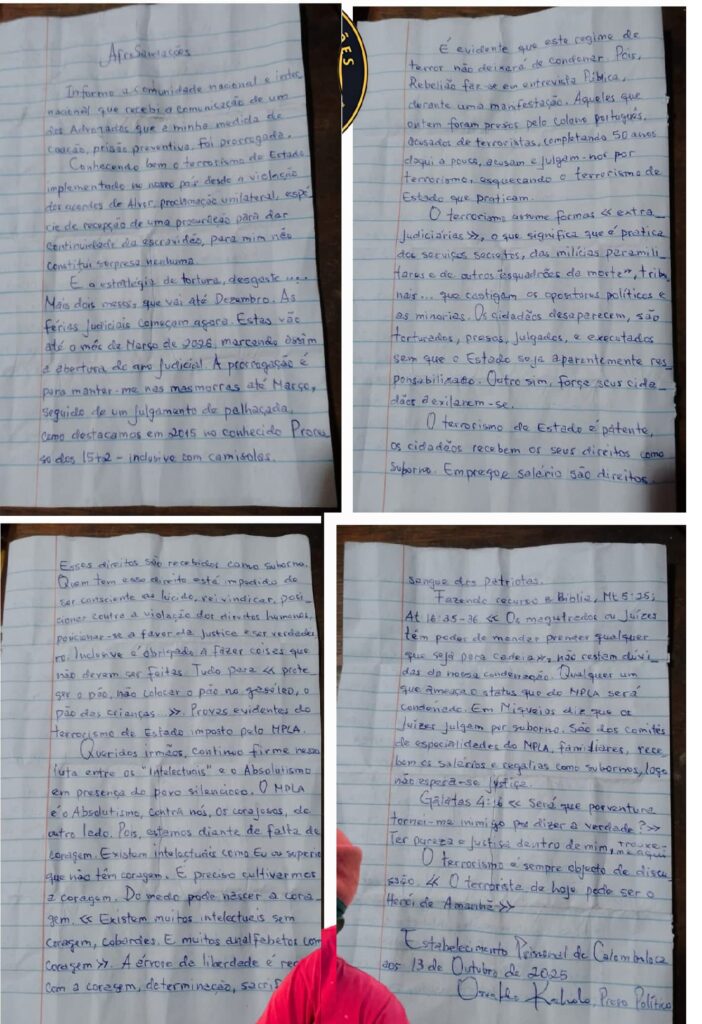 Apresentações
Informo a Comunidade nacional e inter
nacional que recebi a comunicação de um
dos Advogados que a minha medida de
coacção, prisão preventiva, foi prorrogada.
Conhecendo bem o terrorismo do Estado
implementado no nosso país desde a violação
dos acordos de Alvor, proclamação unilateral, espé
cie de recepção de uma procuração para dar
continuidade da escravidão, para mim não
constitui surpresa nenhuma.
É a estratégia de tortura, desgaste ....
Mais dois meses, que vai até Dezembro. As
férias judiciais começam agora. Estas vão
até o mês de Março de 2026, marcando assim
a abertura do ano judicial. A prorrogação é
para manter-me nas masmorras até Março,
seguido de um julgamento de palhaçada,
como destacamos em 2015 no conhecido Proces
so dos 15+2 - inclusive com camisolas.
ÕES
É evidente que este regime de
terror não deixará de condenar. Pois,
Rebelião faz-se em entrevista Pública,
durante uma manifestação. Aqueles que
ontem foram presos pelo colono português,
acusados de terroristas, completando 50 anos
daqui a pouco, acusam e julgam-nos por
terrorismo, esquecendo o terrorismo de
Estado que praticam.
O terrorismo assume formas << extra_
judiciárias >>, o que significa que é pratica
dos serviços secretos, das milícias paramili_
tares e de outros "esquadrões da morte", tribu
nais... que castigam os opositores políticos e
as minorias. Os cidadãos desaparecem, são
torturados, presos, julgados, e executados
sem que o Estado seja aparentemente res
ponsabilizado. Outro sim, força seus cida_
dãos à exilarem-se.
O terrorismo de Estado é patente,
os cidadãos recebem os seus direitos como
suborno. Emprego e salário são direitos.
Esses direitos são recebidos como suborno.
Quem tem esse direito está impedido de
ser consciente ou lúcido, reivindicar, posi_
cionar contra a violação dos direitos humanos,
posicionar-se a favor da justiça e ser verdadei
ro. Inclusive é obrigado a fazer coisas que
não devem ser feitas. Tudo para << prote
ger o pão, não colocar o pão no gasóleo, o
pão das crianças... >>. Provas evidentes do
terrorismo de Estado imposto pelo MPLA.
Queridos irmãos, continuo firme nessa
luta entre os "Intelectuais" e o Absolutismo
em presença do povo silencioso. O MPLA
é o Absolutismo, contra nós, os corajosos, do
outro lado. Pois, estamos diante de falta de
coragem. Existem intelectuais como Eu ou superio
que não têm coragem. É preciso cultivarmos
a coragem. Do medo pode nascer a cora_
gem. << Existem muitos intelectuais sem
coragem, cobardes. E muitos analfabetos com
coragem >>. A árvore da liberdade é reg
com a coragem, determinação, sacrif
sangue dos patriotas.
Fazendo recurso a Bíblia, Mt 5:25;
At 16:35-36 << Os magistrados ou juízes
têm poder de mandar prender qualquer
que seja para cadeia >>, não restem dúvi_
das da nossa condenação. Qualquer um
que ameaça o status quo do MPLA será
condenado. Em Miqueias diz que os
juízes julgam por suborno. São dos comités
de especialidades do MPLA, familiares, rece_
bem os salários e regalias como subornos, logo
não espera-se justiça.
Gálatas 4:16 << Será que porventura
tornei-me inimigo por dizer a verdade? >>
Ter pureza e justiça dentro de mim, trouxe-
me aqui
O terrorismo é sempre objecto de discu
ssão. << O terrorista de hoje pode ser o
Herói de Amanhã >>
Estabelecimento Prisional de Calomboloca
aos 13 de Outubro de 2025
Osvaldo Kaholo, Preso Político